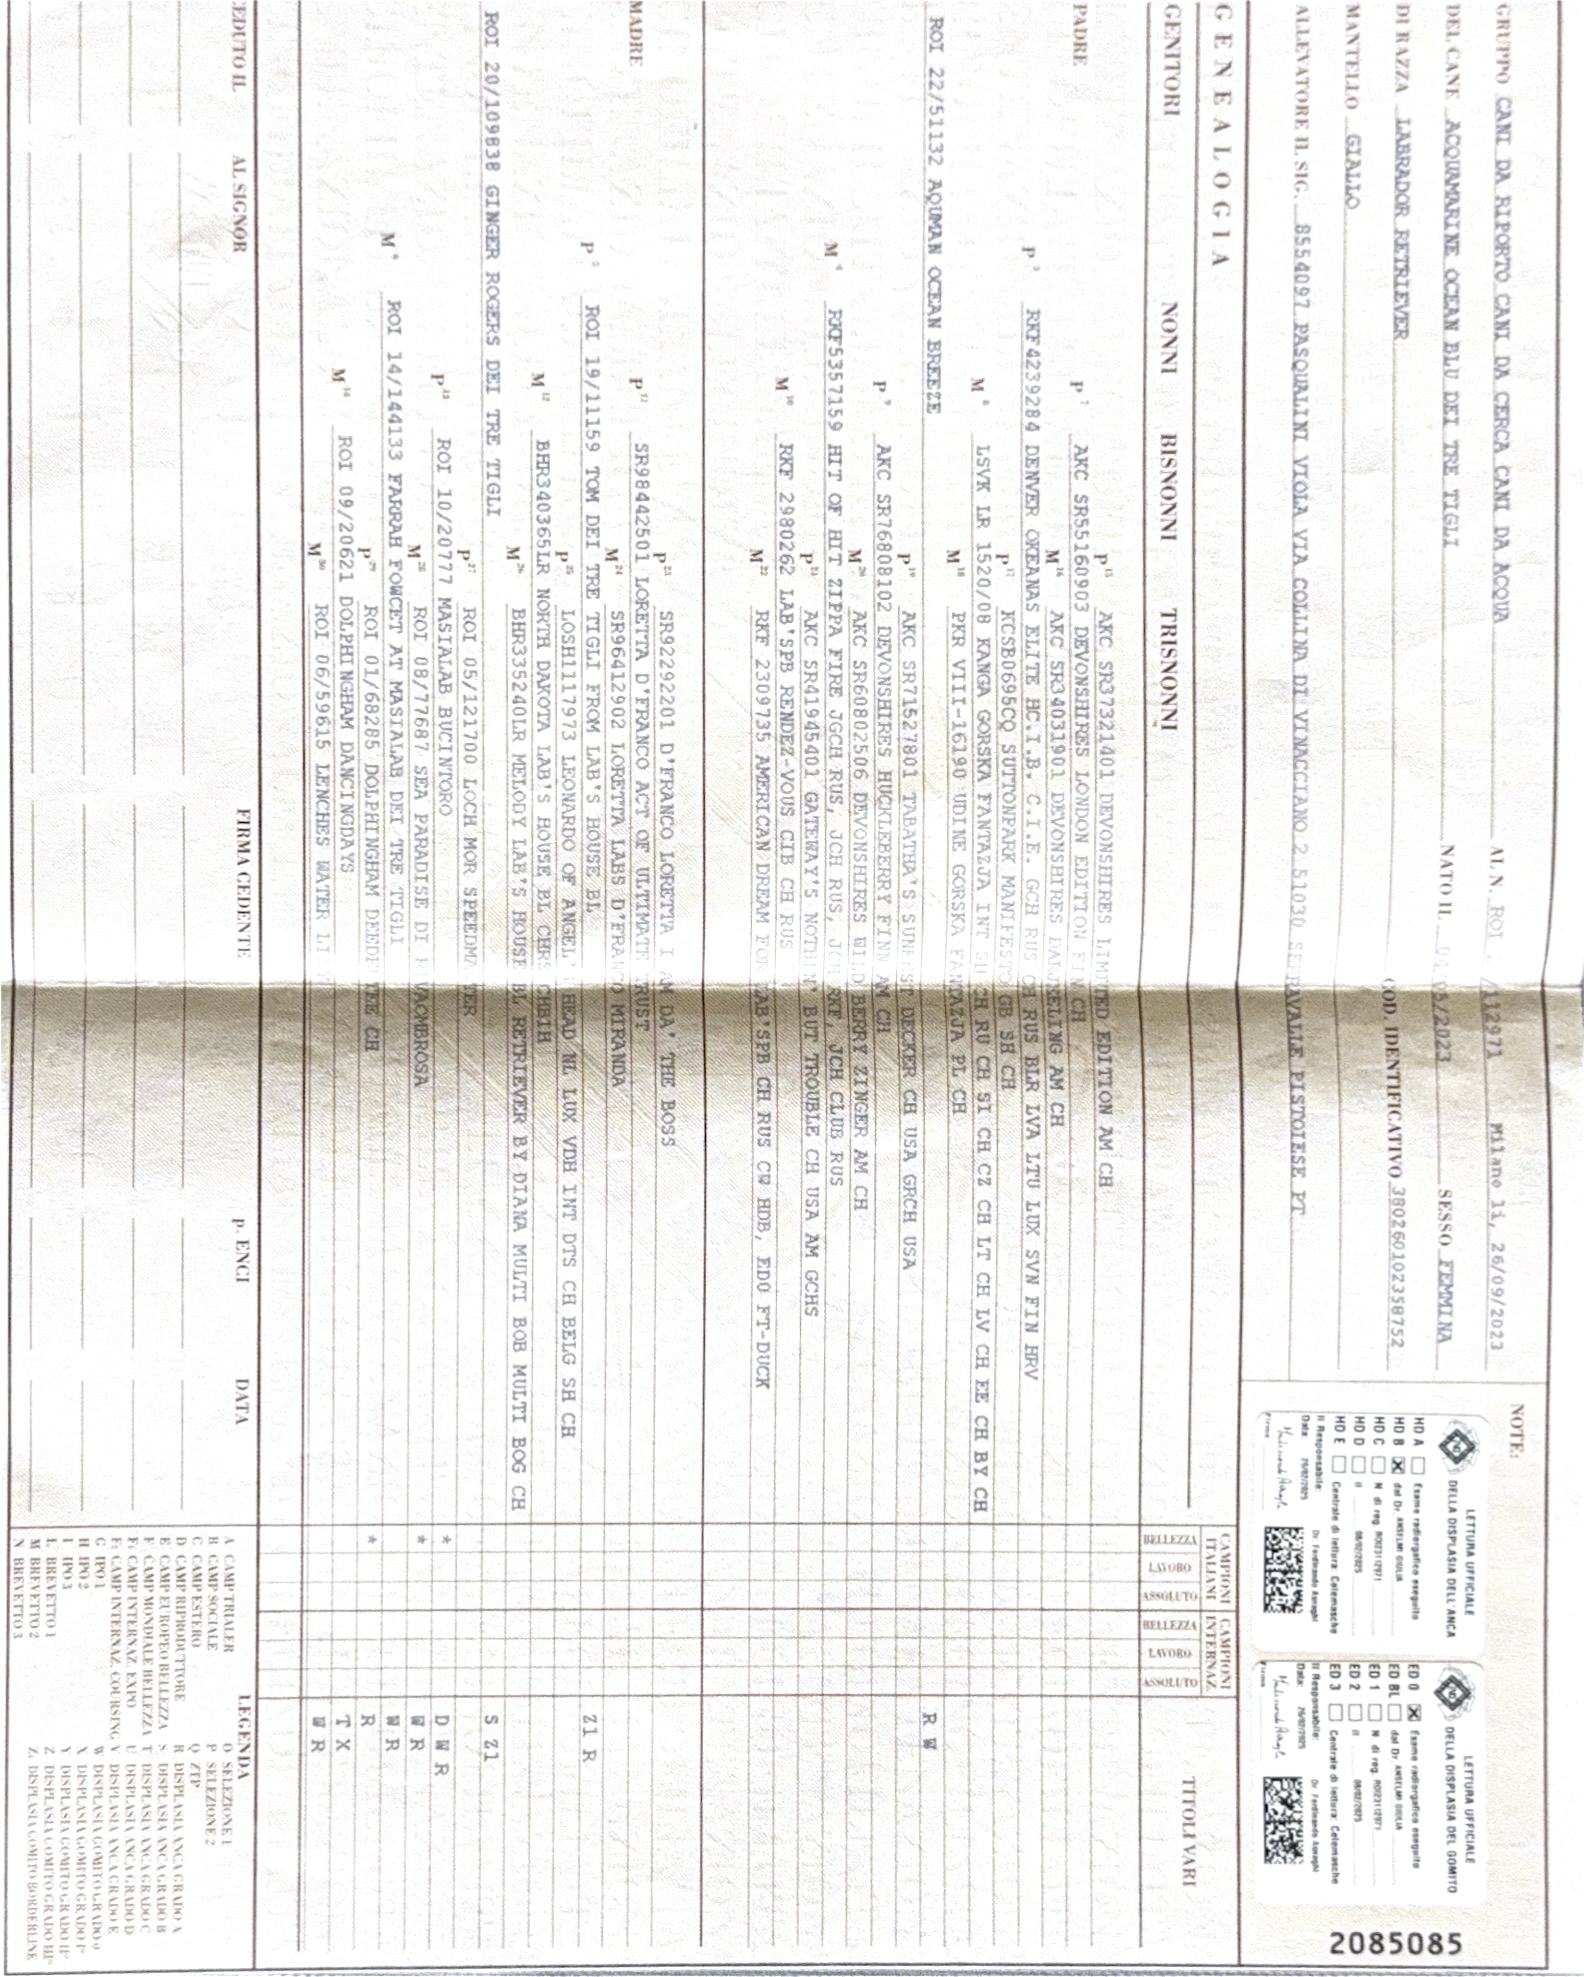 GRUPPO CANI DA RIPORTO CANI DA CERCA CANI DA ACQUA AL N. ROI /112971 Milano li, 26/09/2023
DEL CANE ACQUAMARINE OCEAN BLU DEI TRE TIGLI NATO IL 05/2023 SESSO FEMMINA
DI RAZZA LABRADOR RETRIEVER COD. IDENTIFICATIVO 380260102358752
MANTELLO GIALLO
ALLEVATORE IL SIG. 8554097 PASQUALINI VIOLA VIA COLLINA DI VINACCIANO 2 51030 SERRAVALLE PISTOIESE PT
NOTE:
LETTURA UFFICIALE
DELLA DISPLASIA DELL'ANCA
HD A Esame radiografico eseguito
HD B ☒ dal Dr. ANSELMI GIULIA
HD C N. di reg. ROI23112971
HD D il 08/02/2025
HD E Centrale di lettura: Celemasche
Il Responsabile: Dr. Ferdinando Asnaghi
Data: 26/02/2025
Firma
LETTURA UFFICIALE
DELLA DISPLASIA DEL GOMITO
ED 0 ☒ Esame radiografico eseguito
ED BL dal Dr. ANSELMI GIULIA
ED 1 N. di reg. ROI23112971
ED 2 il 08/02/2025
ED 3 Centrale di lettura: Celemasche
Il Responsabile: Dr. Ferdinando Asnaghi
Data: 26/02/2025
Firma
2085085
GENEALOGIA
GENITORI NONNI BISNONNI TRISNONNI
CAMPIONI ITALIANI CAMPIONI INTERNAZ. TITOLI VARI
BELLEZZA LAVORO ASSOLUTO BELLEZZA LAVORO ASSOLUTO
P 15 AKC SR37321401 DEVONSHIRES LIMITED EDITION AM CH
P 7 AKC SR55160903 DEVONSHIRES LONDON EDITION FIN CH
M 16 AKC SR34031901 DEVONSHIRES DARKELING AM CH
P 3 RKF4239284 DENVER OKEANAS ELITE HC.I.B. C.I.E. GCH RUS CH RUS BLR LVA LTU LUX SVN FIN HRV
P 17 KCSB0695CQ SUTTONPARK MANIFESTO GB SH CH
M 8 LSVK LR 1520/08 KANGA GORSKA FANTAZJA INT SH CH RU CH SI CH CZ CH LT CH LV CH EE CH BY CH
M 18 PKR VIII-16190 UDINE GORSKA FANTAZJA PL CH
PADRE ROI 22/51132 AQUMAN OCEAN BREEZE R W
P 19 AKC SR71527801 TABATHA'S SUNFST DECKER CH USA GRCH USA
P 9 AKC SR76808102 DEVONSHIRES HUCKLEBERRY FINN AM CH
M 20 AKC SR60802506 DEVONSHIRES WILD BERRY ZINGER AM CH
M 4 RKF5357159 HIT OF HIT ZIPPA FIRE JGCH RUS, JCH RUS, JCH RKF, JCH CLUB RUS
P 21 AKC SR41945401 GATEWAY'S NOTHIN' BUT TROUBLE CH USA AM GCHS
M 10 RKF 2980262 LAB'SPB RENDEZ-VOUS CIB CH RUS
M 22 RKF 2309735 AMERICAN DREAM FOR LAB'SPB CH RUS CW HDB, EDO FT-DUCK
P 23 SR92292201 D'FRANCO LORETTA I AM DA' THE BOSS
P 11 SR98442501 LORETTA D'FRANCO ACT OF ULTIMATE TRUST
M 24 SR96412902 LORETTA LABS D'FRANCO MIRANDA
P 5 ROI 19/11159 TOM DEI TRE TIGLI FROM LAB'S HOUSE BL Z1 R
P 25 LOSH1117973 LEONARDO OF ANGEL'S HEAD NL LUX VDH INT DTS CH BELG SH CH
M 12 BHR340365LR NORTH DAKOTA LAB'S HOUSE BL CHRS CHBIH
M 26 BHR335240LR MELODY LAB'S HOUSE BL RETRIEVER BY DIANA MULTI BOB MULTI BOG CH
MADRE ROI 20/109838 GINGER ROGERS DEI TRE TIGLI S Z1
P 27 ROI 05/121700 LOCH MOR SPEEDMASTER
P 13 ROI 10/20777 MASIALAB BUCINTORO * D W R
M 28 ROI 08/77687 SEA PARADISE DI VAOMBROSA * W R
M 6 ROI 14/144133 FARRAH FOWCET AT MASIALAB DEI TRE TIGLI W R
P 29 ROI 01/68285 DOLPHINGHAM DEEDEE TEE CH * R
M 14 ROI 09/20621 DOLPHINGHAM DANCINGDAYS T X
M 30 ROI 06/59615 LENCHES WATER LILY W R
CEDUTO IL AL SIGNOR FIRMA CEDENTE p. ENCI DATA
LEGENDA
A CAMP TRIALER
B CAMP SOCIALE
C CAMP ESTERO
D CAMP RIPRODUTTORE
E CAMP EUROPEO BELLEZZA
F CAMP MONDIALE BELLEZZA
F1 CAMP INTERNAZ. EXPO
F2 CAMP INTERNAZ. COURSING
G IPO 1
H IPO 2
I IPO 3
L BREVETTO 1
M BREVETTO 2
N BREVETTO 3
O SELEZIONE 1
P SELEZIONE 2
Q ZTP
R DISPLASIA ANCA GRADO A
S DISPLASIA ANCA GRADO B
T DISPLASIA ANCA GRADO C
U DISPLASIA ANCA GRADO D
V DISPLASIA ANCA GRADO E
W DISPLASIA GOMITO GRADO 0
X DISPLASIA GOMITO GRADO I°
Y DISPLASIA GOMITO GRADO II°
Z DISPLASIA GOMITO GRADO III°
Z1 DISPLASIA GOMITO BORDERLINE